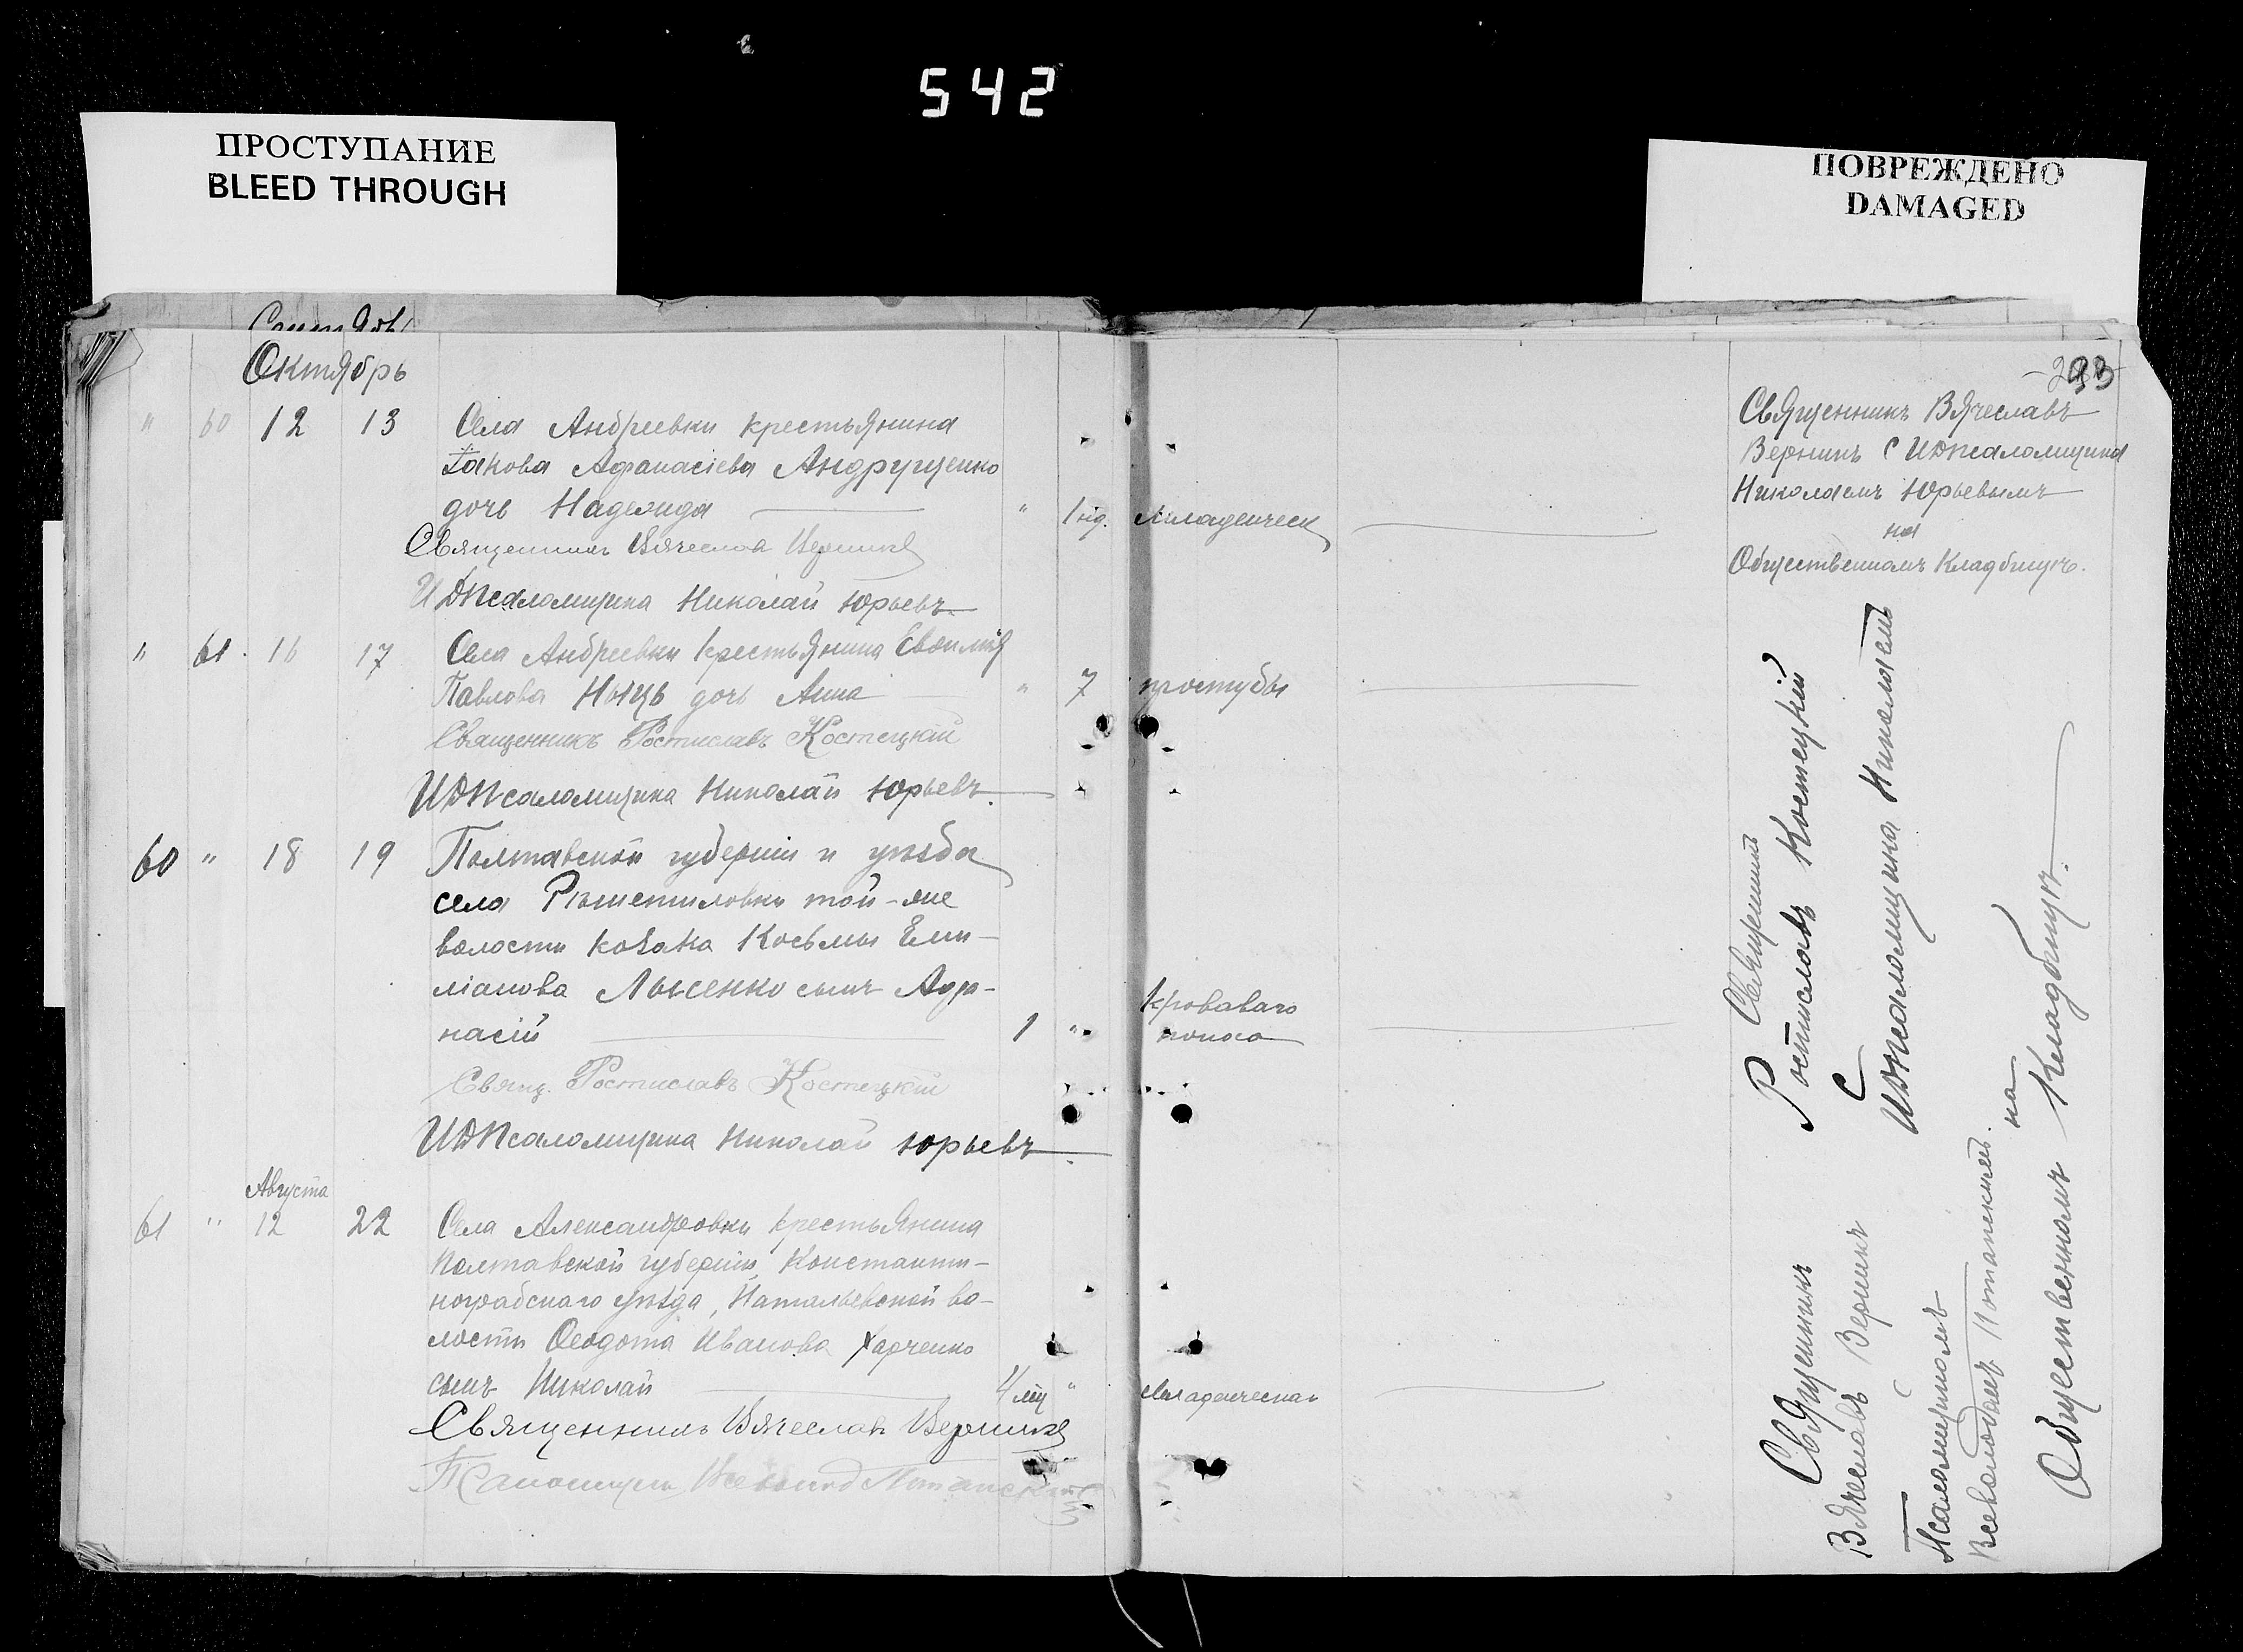 542
ПРОСТУПАНИЕ
BLEED THROUGH
ПОВРЕЖДЕНО
DAMAGED
Октябрь
" 60 12 13 Села Андреевки крестьянина
Іакова Афанасіева Андрущенко
дочь Надежда " 1 нд. младенческ
Священникъ Вячеслав Верникъ
И Д Псаломщика Николай Юрьевъ
" 61. 16 17 Села Андреевки крестьянина Евѳимія
Павлова дочь Анна " 7 простуды
Священникъ Ростиславъ Костецкій
И Д Псаломщика Николай Юрьевъ.
60 " 18 19 Полтавской губерніи и уѣзда
села Рѣшетиловки той-же
волости козака Косьмы Еми-
ліанова Лысенко сынъ Аѳа-
насій 1 " Кроваваго
поноса
Свящ. Ростиславъ Костецкій
И Д Псаломщика Николай Юрьевъ.
Августа
61 " 12 22 Села Александровки крестьянина
Полтавской губерніи, Константи-
ноградскаго уѣзда, Натальевской во-
лости Ѳеодота Иванова Харченко
сынъ Николай 4 мц " младенческая
Священникъ Вячеслав Верникъ
293
Священникъ Вячеславъ
Верникъ С И Д Псаломщика
Николаемъ Юрьевымъ
на
Общественномъ Кладбищѣ.
Священникъ
Ростиславъ Костецкій
С
И Д Псаломщика Николаемъ
Священникъ
Вячеславъ Верникъ
С
Псаломщикомъ
Всеволодомъ Потапскимъ.
на
Общественномъ Кладбищѣ.